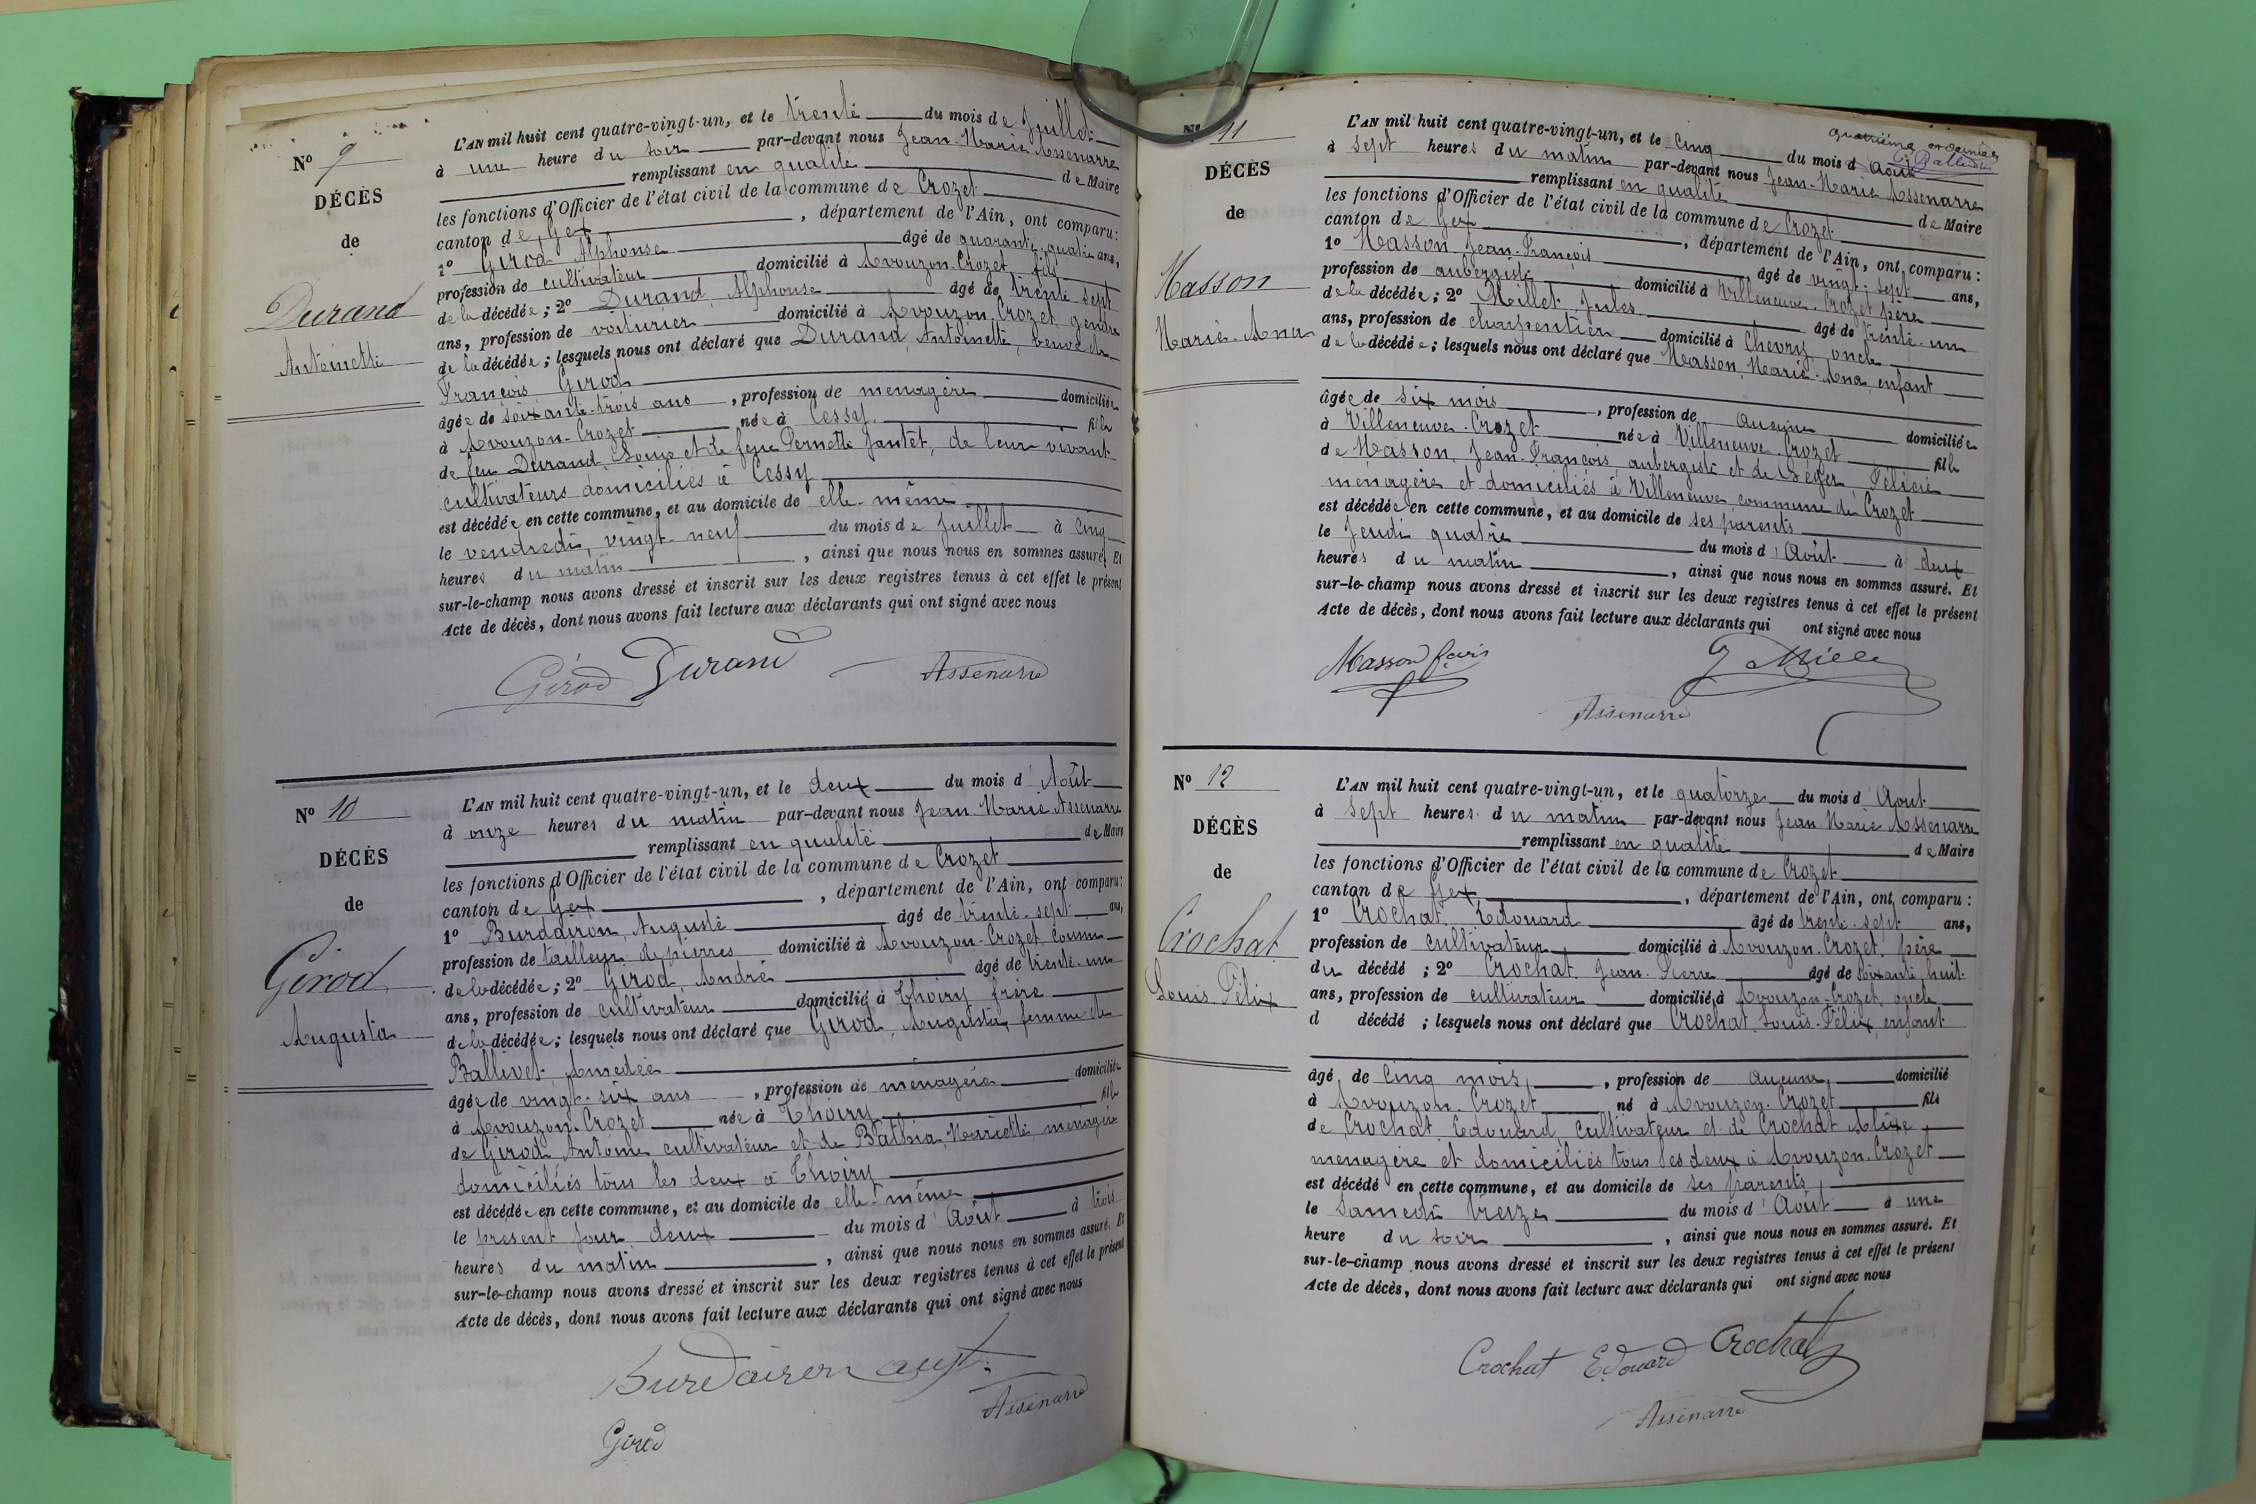 N° 9
DÉCÈS
de
Durand
Antoinette
L'AN mil huit cent quatre-vingt-un, et le trente du mois de Juillet
à une heure du soir par-devant nous Jean-Marie Assenarre
remplissant en qualité de Maire
les fonctions d'Officier de l'état civil de la commune de Crozet
canton de Gex, département de l'Ain, ont comparu:
1° Girod Alphonse âgé de quarante-quatre ans,
profession de cultivateur domicilié à Avouzon-Crozet fils
de la décédée; 2° Durand, Alphonse âgé de trente sept
ans, profession de voiturier domicilié à Avouzon-Crozet, gendre
de la décédée; lesquels nous ont déclaré que Durand, Antoinette, veuve de
François Girod
âgée de soixante-trois ans, profession de ménagère domiciliée
à Avouzon-Crozet née à Cessy. fille
de feu Durand, Louis et de feue Pernette Jantet, de leur vivant
cultivateurs domiciliés à Cessy
est décédée en cette commune, et au domicile de elle-même
le vendredi, vingt-neuf du mois de Juillet à cinq
heures du matin, ainsi que nous nous en sommes assuré. Et
sur-le-champ nous avons dressé et inscrit sur les deux registres tenus à cet effet le présent
Acte de décès, dont nous avons fait lecture aux déclarants qui ont signé avec nous
Girod Durand Assenarre
N° 10
DÉCÈS
de
Girod
Augusta
L'AN mil huit cent quatre-vingt-un, et le deux du mois d'Août
à onze heures du matin par-devant nous Jean Marie Assenarre
remplissant en qualité de Maire
les fonctions d'Officier de l'état civil de la commune de Crozet
canton de Gex, département de l'Ain, ont comparu:
1° Burdairon, Auguste âgé de trente-sept ans,
profession de tailleur de pierres domicilié à Avouzon-Crozet, cousin
de la décédée; 2° Girod, André âgé de trente-un
ans, profession de cultivateur domicilié à Thoiry frère
de la décédée; lesquels nous ont déclaré que Girod, Augusta, femme de
Ballivet Amédée
âgée de vingt-six ans, profession de ménagère domiciliée
à Avouzon-Crozet née à Thoiry fille
de Girod Antoine cultivateur et de Mariette, ménagère
domiciliés tous les deux à Thoiry
est décédée en cette commune, et au domicile de elle-même
le présent jour deux du mois d'Août à trois
heures du matin, ainsi que nous nous en sommes assuré. Et
sur-le-champ nous avons dressé et inscrit sur les deux registres tenus à cet effet le présent
Acte de décès, dont nous avons fait lecture aux déclarants qui ont signé avec nous
Burdairon aust.
Assenarre
Girod
quatrième et dernier
N° 11
DÉCÈS
de
Masson
Marie-Ana
L'AN mil huit cent quatre-vingt-un, et le cinq du mois d'Août
à sept heures du matin par-devant nous Jean-Marie Assenarre
remplissant en qualité de Maire
les fonctions d'Officier de l'état civil de la commune de Crozet
canton de Gex, département de l'Ain, ont comparu:
1° Masson Jean-François âgé de vingt-sept ans,
profession de aubergiste domicilié à Villeneuve-Crozet père
de la décédée; 2° Millet Jules. âgé de trente-un
ans, profession de charpentier domicilié à Chevry, oncle
de la décédée; lesquels nous ont déclaré que Masson, Marie-Ana, enfant
âgée de six mois, profession de aucune domiciliée
à Villeneuve-Crozet née à Villeneuve-Crozet fille
de Masson, Jean-François, aubergiste et de Léger Félicie
ménagère et domiciliés à Villeneuve commune de Crozet
est décédée en cette commune, et au domicile de ses parents
le Jeudi quatre du mois d'Août à deux
heures du matin, ainsi que nous nous en sommes assuré. Et
sur-le-champ nous avons dressé et inscrit sur les deux registres tenus à cet effet le présent
Acte de décès, dont nous avons fait lecture aux déclarants qui ont signé avec nous
Masson J Millet
Assenarre
N° 12
DÉCÈS
de
Crochat
Louis Félix
L'AN mil huit cent quatre-vingt-un, et le quatorze du mois d'Aout
à sept heures du matin par-devant nous Jean Marie Assenarre
remplissant en qualité de Maire
les fonctions d'Officier de l'état civil de la commune de Crozet
canton de Gex, département de l'Ain, ont comparu:
1° Crochat Edouard âgé de trente-sept ans,
profession de cultivateur domicilié à Avouzon-Crozet père
du décédé; 2° Crochat Jean-Pierre âgé de soixante huit
ans, profession de cultivateur domicilié à Avouzon-Crozet, oncle
d décédé; lesquels nous ont déclaré que Crochat, Louis-Félix, enfant
âgé de cinq mois, profession de aucune, domicilié
à Avouzon-Crozet né à Avouzon-Crozet fils
de Crochat Edouard cultivateur et de Crochat Alixe,
menagère et domiciliés tous les deux à Avouzon-Crozet
est décédé en cette commune, et au domicile de ses parents,
le Samedi treize du mois d'Août à une
heure du soir, ainsi que nous nous en sommes assuré. Et
sur-le-champ nous avons dressé et inscrit sur les deux registres tenus à cet effet le présent
Acte de décès, dont nous avons fait lecture aux déclarants qui ont signé avec nous
Crochat Edouard Crochat
Assenarre